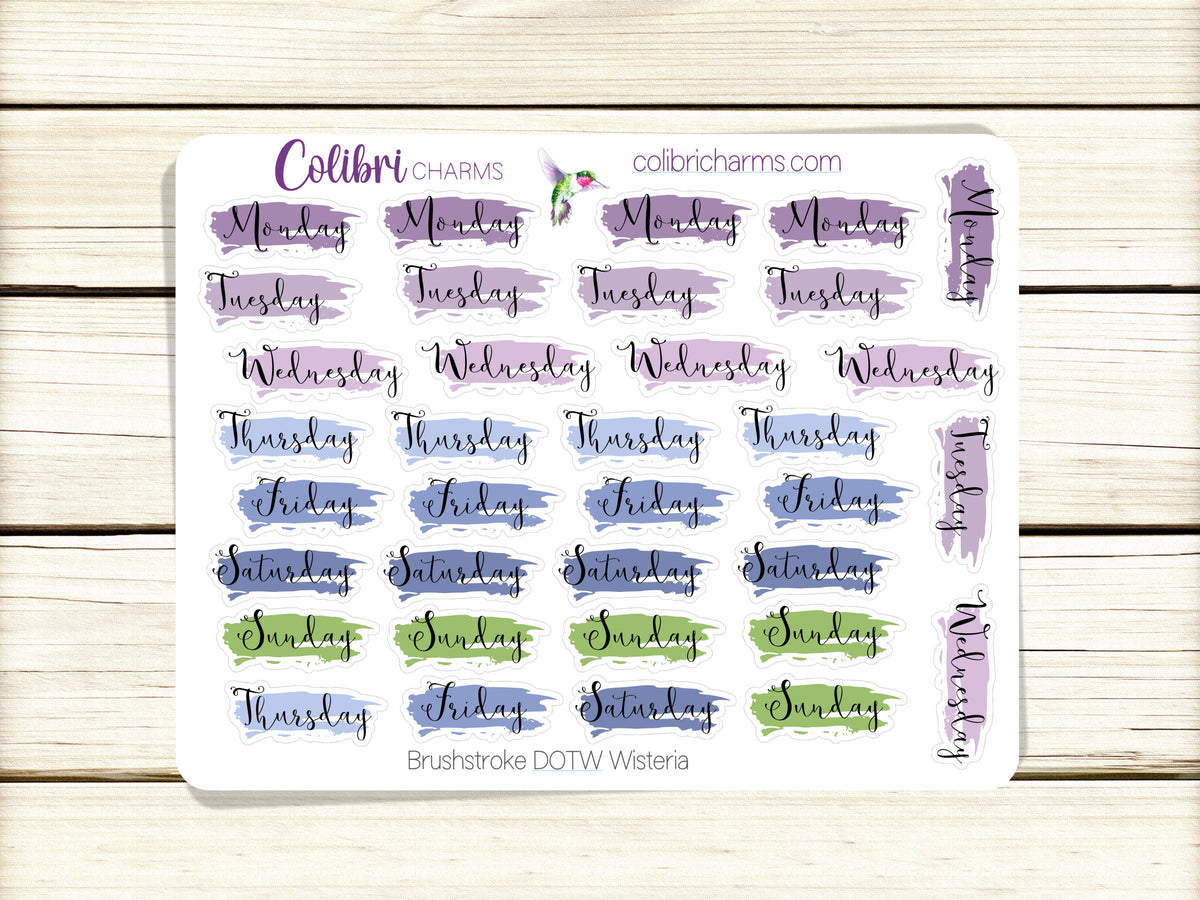 Colibri CHARMS
colibricharms.com
Monday Monday Monday Monday
Monday
Tuesday Tuesday Tuesday Tuesday
Wednesday Wednesday Wednesday Wednesday
Thursday Thursday Thursday Thursday
Tuesday
Friday Friday Friday Friday
Saturday Saturday Saturday Saturday
Sunday Sunday Sunday Sunday
Wednesday
Thursday Friday Saturday Sunday
Brushstroke DOTW Wisteria